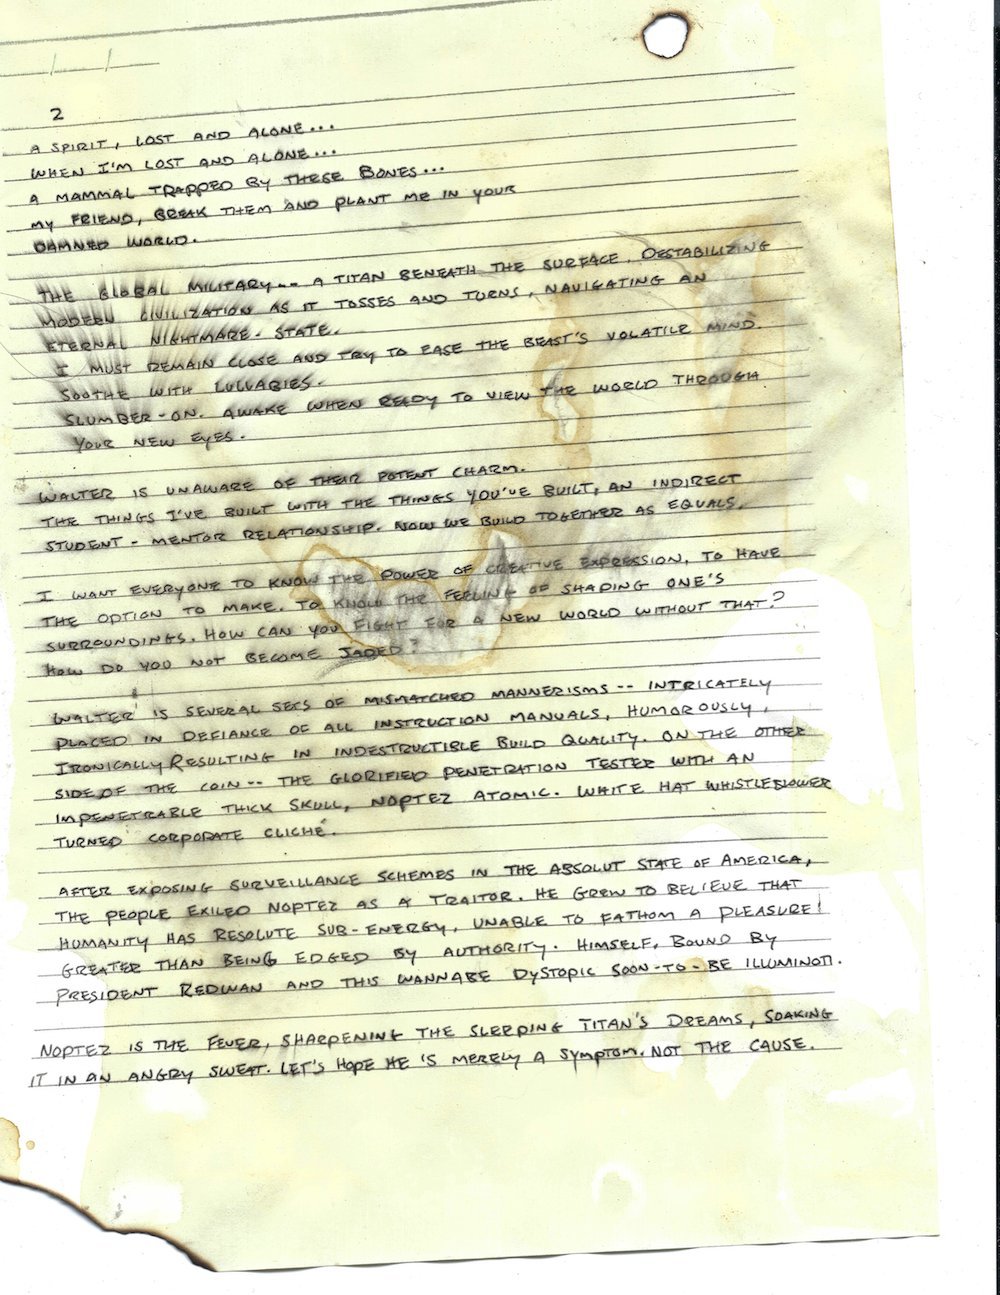 2
A SPIRIT, LOST AND ALONE...
WHEN I'M LOST AND ALONE...
A MAMMAL TRAPPED BY THESE BONES...
MY FRIEND, BREAK THEM AND PLANT ME IN YOUR
DAMNED WORLD.
THE GLOBAL MILITARY-- A TITAN BENEATH THE SURFACE. DESTABILIZING
MODERN CIVILIZATION AS IT TOSSES AND TURNS, NAVIGATING AN
ETERNAL NIGHTMARE-STATE.
I MUST REMAIN CLOSE AND TRY TO EASE THE BEAST'S VOLATILE MIND.
SOOTHE WITH LULLABIES.
SLUMBER-ON. AWAKE WHEN READY TO VIEW THE WORLD THROUGH
YOUR NEW EYES.
WALTER IS UNAWARE OF THEIR POTENT CHARM.
THE THINGS I'VE BUILT WITH THE THINGS YOU'VE BUILT, AN INDIRECT
STUDENT-MENTOR RELATIONSHIP. NOW WE BUILD TOGETHER AS EQUALS.
I WANT EVERYONE TO KNOW THE POWER OF CREATIVE EXPRESSION, TO HAVE
THE OPTION TO MAKE. TO KNOW THE FEELING OF SHAPING ONE'S
SURROUNDINGS. HOW CAN YOU FIGHT FOR A NEW WORLD WITHOUT THAT?
HOW DO YOU NOT BECOME JADED?
WALTER IS SEVERAL SETS OF MISMATCHED MANNERISMS -- INTRICATELY
PLACED IN DEFIANCE OF ALL INSTRUCTION MANUALS, HUMOROUSLY,
IRONICALLY RESULTING IN INDESTRUCTIBLE BUILD QUALITY. ON THE OTHER
SIDE OF THE COIN-- THE GLORIFIED PENETRATION TESTER WITH AN
IMPENETRABLE THICK SKULL, NOPTEZ ATOMIC. WHITE HAT WHISTLEBLOWER
TURNED CORPORATE CLICHÉ.
AFTER EXPOSING SURVEILLANCE SCHEMES IN THE ABSOLUT STATE OF AMERICA,
THE PEOPLE EXILED NOPTEZ AS A TRAITOR. HE GREW TO BELIEVE THAT
HUMANITY HAS RESOLUTE SUB-ENERGY, UNABLE TO FATHOM A PLEASURE
GREATER THAN BEING EDGED BY AUTHORITY. HIMSELF, BOUND BY
PRESIDENT REDWAN AND THIS WANNABE DYSTOPIC SOON-TO-BE ILLUMINOTI.
NOPTEZ IS THE FEVER, SHARPENING THE SLEEPING TITAN'S DREAMS, SOAKING
IT IN AN ANGRY SWEAT. LET'S HOPE HE IS MERELY A SYMPTOM. NOT THE CAUSE.